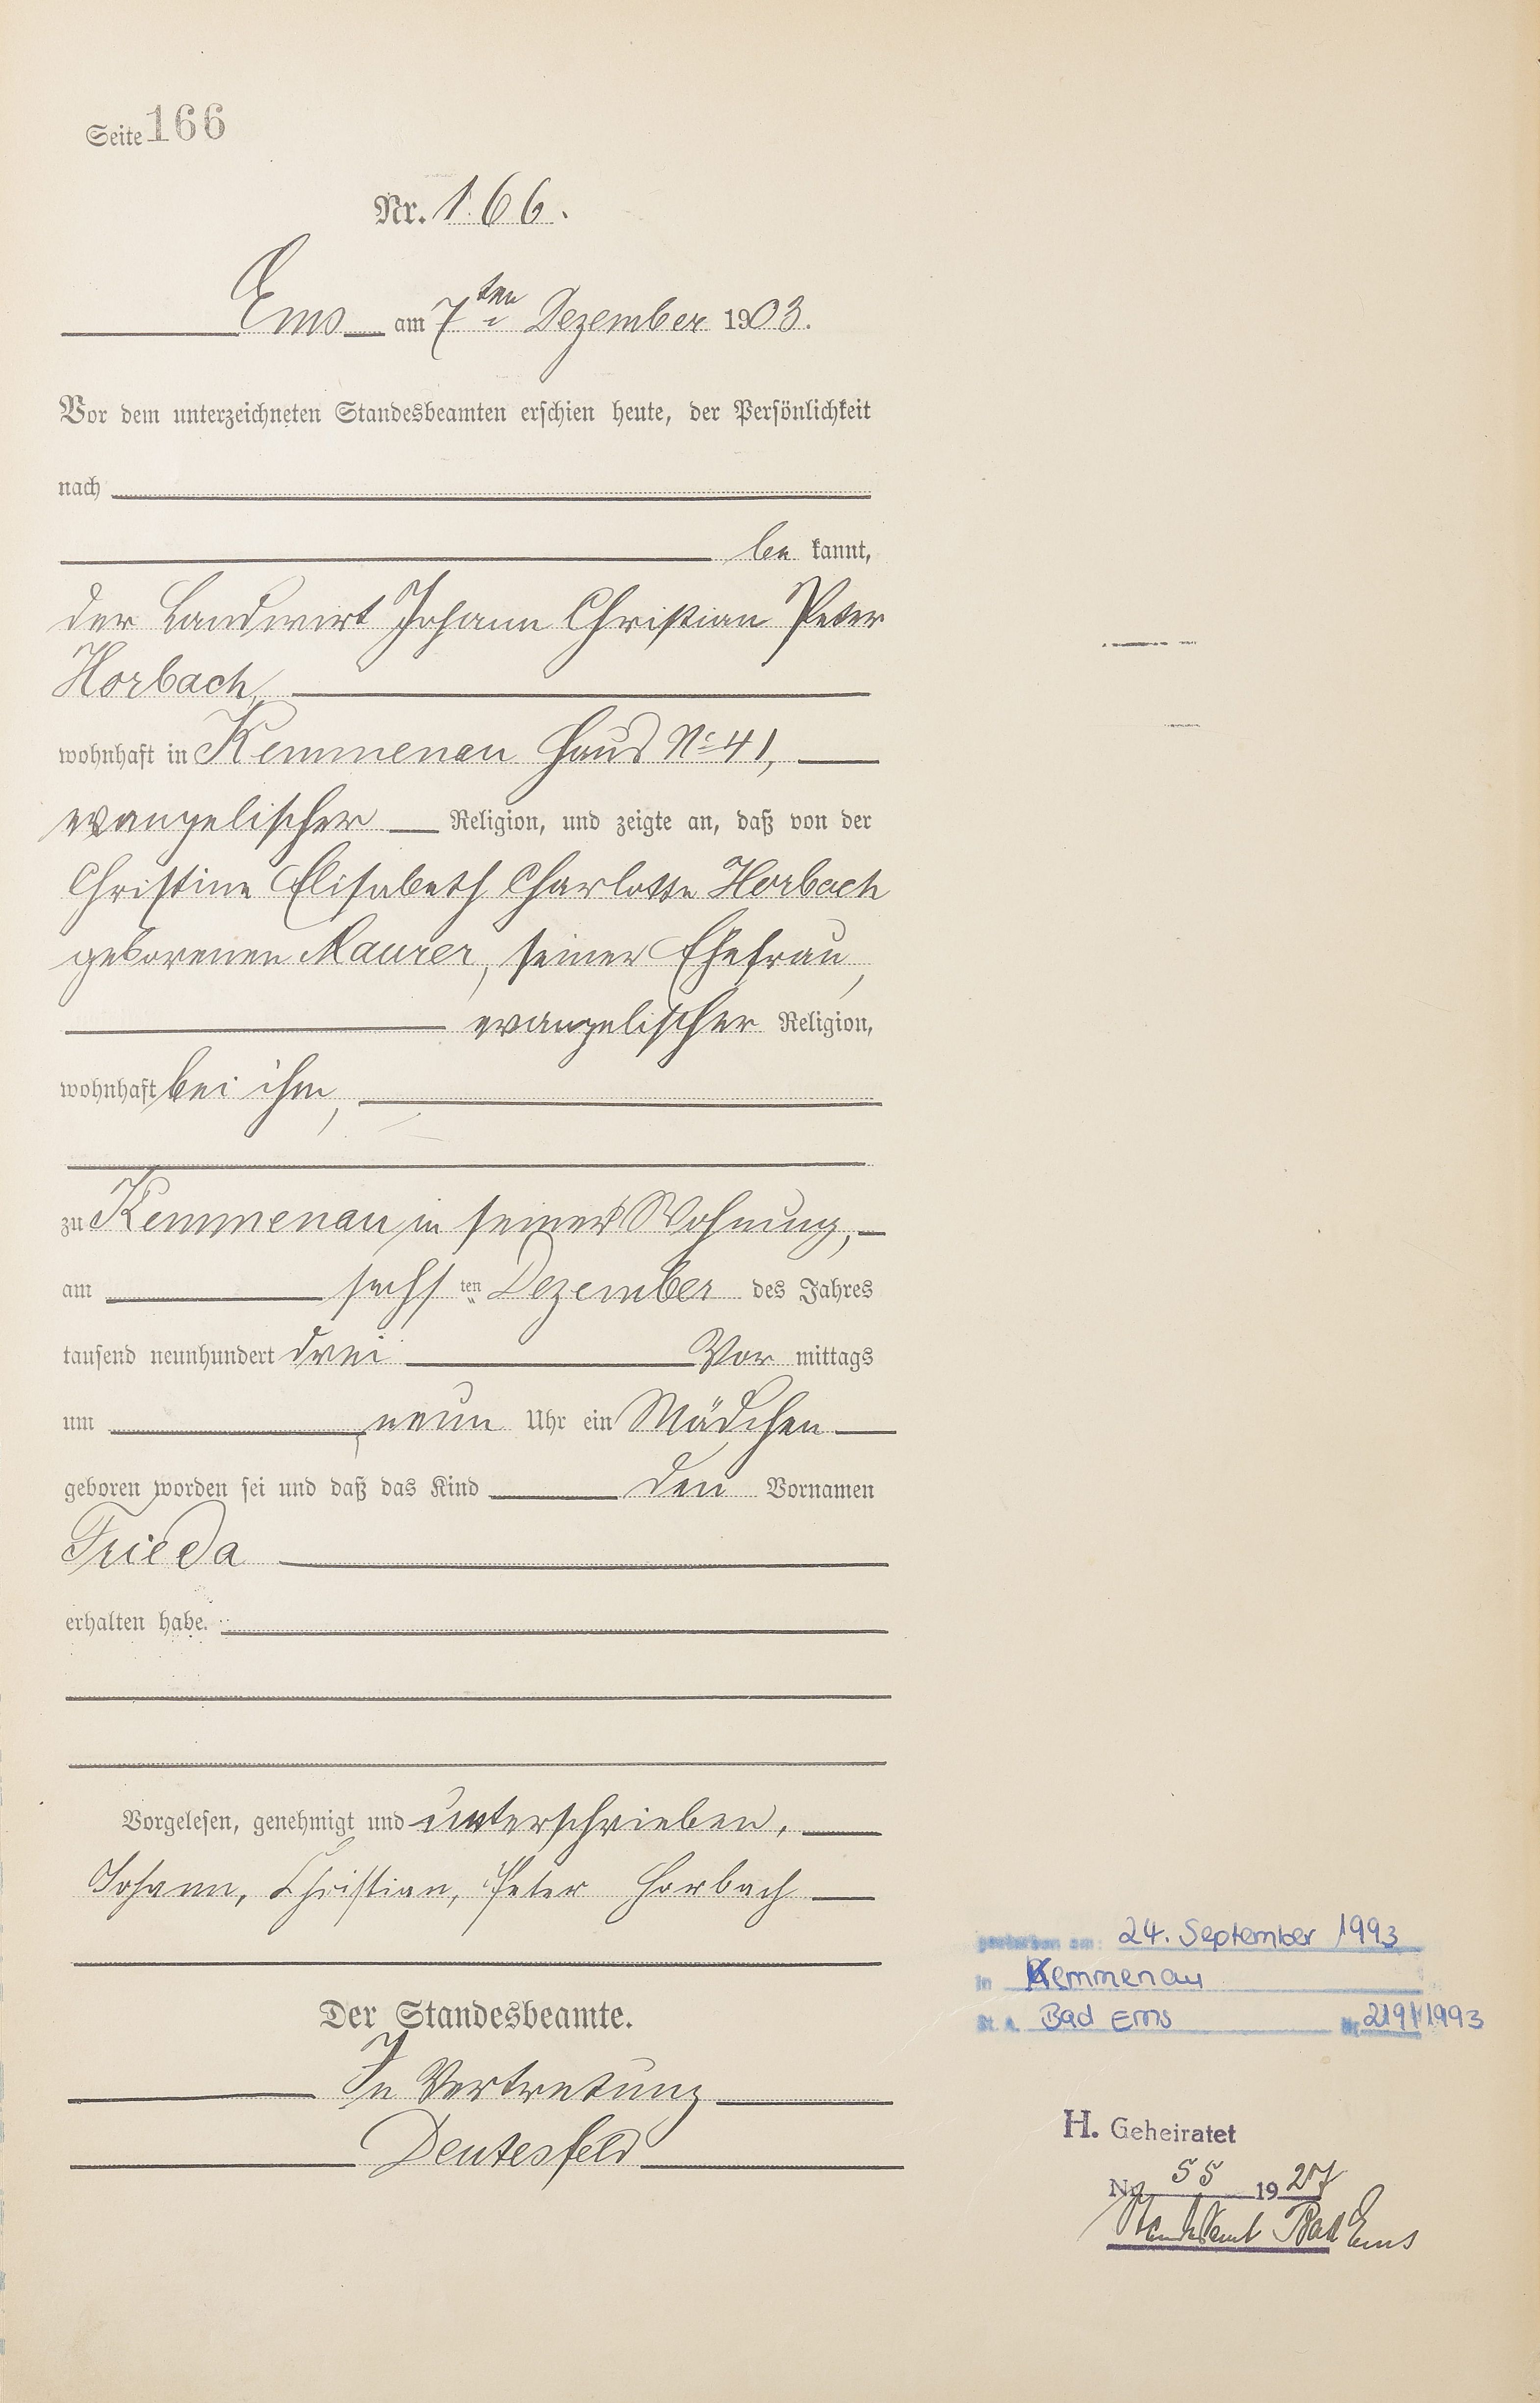 Seite 166
Nr. 166.
Ems am 7ten Dezember 1903.
Vor dem unterzeichneten Standesbeamten erschien heute, der Persönlichkeit
nach
be kannt,
der Landwirt Johann Christian Peter
Horbach,
wohnhaft in Kemmenau Haus No 41,
evangelischer Religion, und zeigte an, daß von der
Christine Elisabeth Charlotte Horbach
geborenen Maurer, seiner Ehefrau,
evangelischer Religion,
wohnhaft bei ihm,
zu Kemmenau in seiner Wohnung,
am sechs ten Dezember des Jahres
tausend neunhundert drei Vor mittags
um neun Uhr ein Mädchen
geboren worden sei und daß das Kind den Vornamen
Frieda
erhalten habe.
Vorgelesen, genehmigt und unterschrieben.
Johann, Christian, Peter Horbach
Der Standesbeamte.
In Vertretung
Deutesfeld
gestorben am: 24. September 1993
in Kemmenau
St. A. Bad Ems Nr. 219/1993
H. Geheiratet
Nr. 55 1927
Standesamt Bad Ems